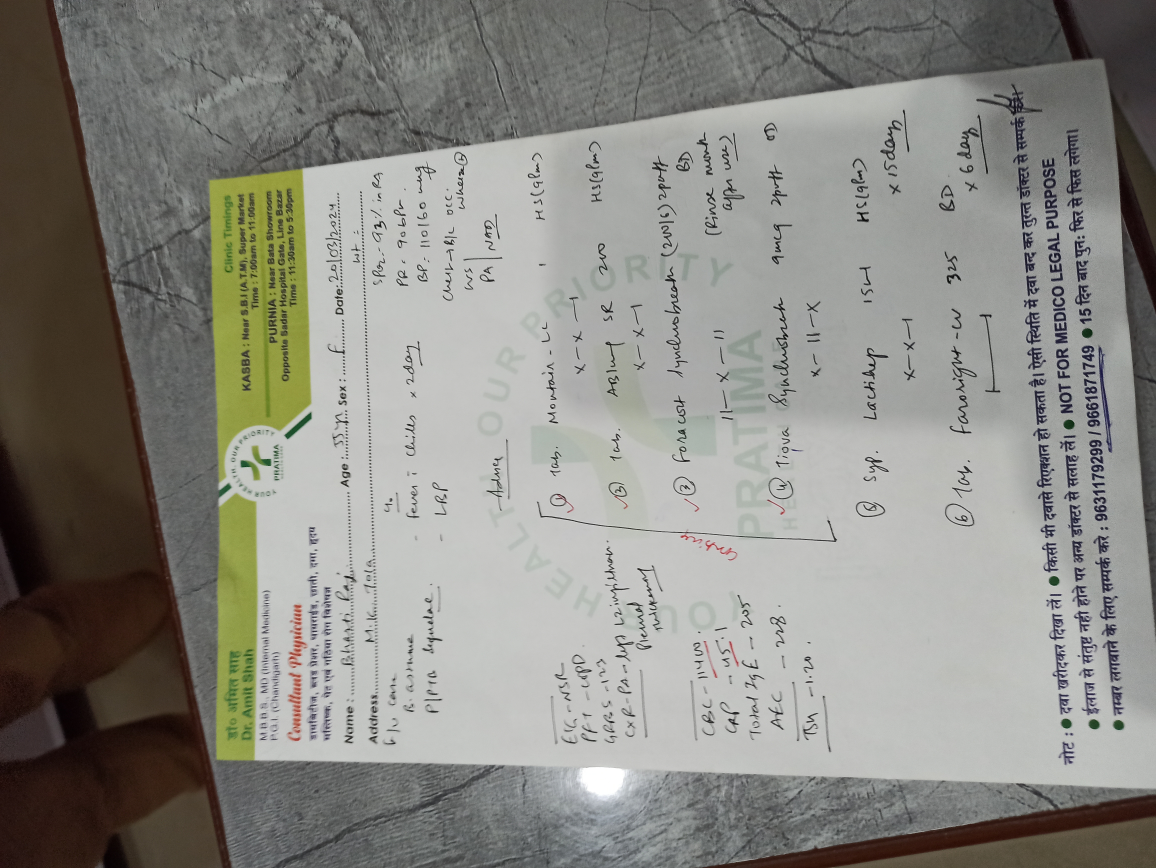 डा० अमित साह
Dr. Amit Shah
M.B.B.S., MD (Internal Medicine)
P.G.I. (Chandigarh)
Consultant Physician
YOUR HEALTH, OUR PRIORITY
PRATIMA
Clinic Timings
KASBA : Near S.B.I (A.T.M), Super Market
Time : 7:00am to 11:00am
PURNIA : Near Bata Showroom
Opposite Sadar Hospital Gate, Line Bazar
Time : 11:30am to 5:30pm
Name : Bharti Age : 55yr Sex : F Date: 20/03/2024
Address M.K. Tola Wt :
F/U case
B. asthma
P/PTB sequelae.
c/o
- fever c̄ chills x 2day
- LBP
SPO2 - 93% in RA
PR - 90 bpm.
BP - 110/60 mmHg
Chest - B/L occ. wheeze
PA | NAD
Advice
ECG - NSR
PFT - COPD.
GRBS - 123
Pleural thickening
CBC - 11400.
CRP - 45.1
Total IgE - 205
AEC - 228.
TSH - 1.20.
① Tab. Montair - LC 1 HS (9pm)
x - x - 1
② Tab. AB Flung SR 200 HS (9pm)
x - x - 1
③ Foracort Synchrobreath (200/6) 2puff BD
11 - x - 11 (Rinse mouth after use)
④ Tiova Synchrobreath 9mcg 2puff OD
x - 11 - x
Continue
⑤ Syp. Lactihep 15ml HS (9pm)
x - x - 1 x 15 day
⑥ Tab. Faronight - CV 325 BD.
1 1 x 6 day
YOUR HEALTH OUR PRIORITY
PRATIMA
नोट : ● दवा खरीदकर दिखा लें। ● किसी भी दवासे रिएक्शन हो सकता है। ऐसी स्थिति में दवा बन्द कर तुरन्त डॉक्टर से सम्पर्क करें।
● ईलाज से संतुष्ट नहीं होने पर अन्य डॉक्टर से सलाह लें। ● NOT FOR MEDICO LEGAL PURPOSE
● नम्बर लगवाने के लिए सम्पर्क करें : 9631179299 / 9661871749 ● 15 दिन बाद पुन: फिर से फिस लगेगा।